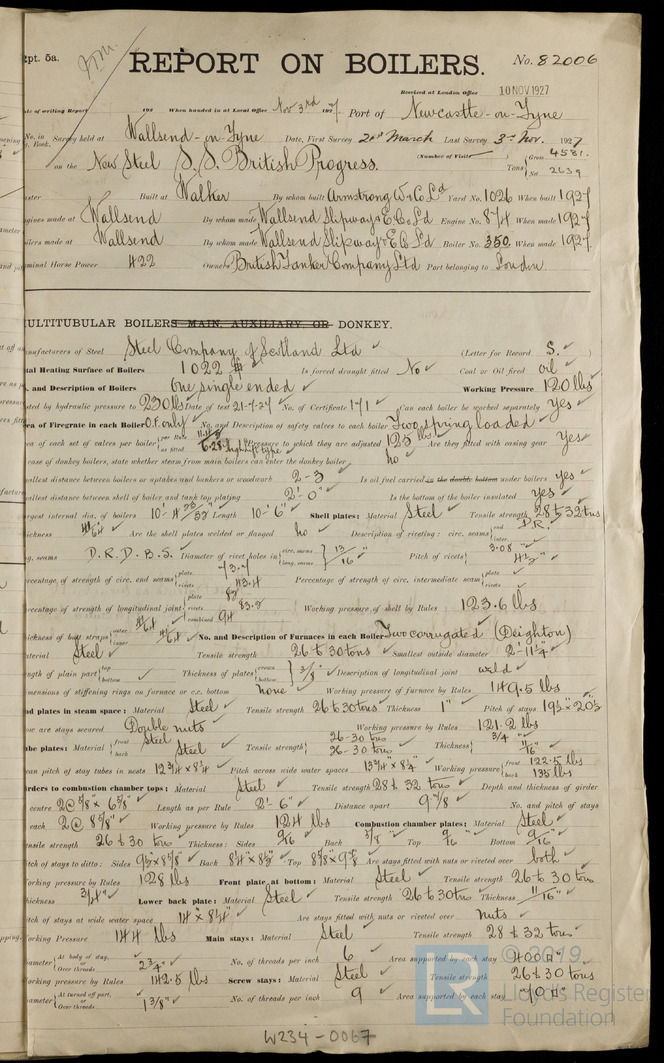 Rpt. 5a.
REPORT ON BOILERS.
No. 82006
Received at London Office 10 NOV 1927
Date of writing Report 192 When handed in at Local Office Nov 3rd 1927 Port of Newcastle-on-Tyne
No. in Survey held at Wallsend-on-Tyne Date, First Survey 2nd March Last Survey 3rd Nov. 1927
Book.
on the New Steel S.S. British Progress. (Number of Visits) Tons { Gross 4581. Net 2639
Built at Walker By whom built Armstrong W. & Co Ld Yard No. 1026 When built 1927
Engines made at Wallsend By whom made Wallsend Slipway & E. Co. Ld Engine No. 874 When made 1927
Boilers made at Wallsend By whom made Wallsend Slipway & E. Co. Ld Boiler No. 350 When made 1927.
Nominal Horse Power 422 Owners British Tanker Company Ltd Port belonging to London
MULTITUBULAR BOILERS MAIN, AUXILIARY, OR DONKEY.
Manufacturers of Steel Steel Company of Scotland Ltd (Letter for Record S. )
Total Heating Surface of Boilers 1022 Is forced draught fitted No Coal or Oil fired oil
No. and Description of Boilers One single ended Working Pressure 120 lbs
Tested by hydraulic pressure to 230 lbs Date of test 21-7-27 No. of Certificate 171 Can each boiler be worked separately Yes
Area of Firegrate in each Boiler O.F. only No. and Description of safety valves to each boiler Two spring loaded
Area of each set of valves per boiler { per Rule as fitted 6.28 high lift type Pressure to which they are adjusted 125 lbs Are they fitted with easing gear Yes
In case of donkey boilers, state whether steam from main boilers can enter the donkey boiler no
Smallest distance between boilers or uptakes and bunkers or woodwork 2-3 Is oil fuel carried in the double bottom under boilers yes
Smallest distance between shell of boiler and tank top plating 2'-0" Is the bottom of the boiler insulated yes
Largest internal dia. of boilers 10'-4 23/32" Length 10'-6" Shell plates: Material Steel Tensile strength 28 to 32 tons
Thickness 41/64" Are the shell plates welded or flanged no Description of riveting: circ. seams { end D.R. inter.
long. seams D.R.D.B.S. Diameter of rivet holes in { circ. seams long. seams 13/16" Pitch of rivets { 3.08" 4 1/2"
Percentage of strength of circ. end seams { plate 73.7 rivets 43.4 Percentage of strength of circ. intermediate seam { plate rivets
Percentage of strength of longitudinal joint { plate 82 rivets 83.2 combined 94 Working pressure of shell by Rules 123.6 lbs
Thickness of butt straps { outer 41/64 inner 41/64 No. and Description of Furnaces in each Boiler Two corrugated (Deighton)
Material Steel Tensile strength 26 to 30 tons Smallest outside diameter 2'-11 1/4"
Length of plain part { top bottom Thickness of plates { crown bottom } 3/8" Description of longitudinal joint weld
Dimensions of stiffening rings on furnace or c.c. bottom none Working pressure of furnace by Rules 149.5 lbs
End plates in steam space: Material Steel Tensile strength 26 to 30 tons Thickness 1" Pitch of stays 19 1/2" x 20 1/2"
How are stays secured Double nuts Working pressure by Rules 121.2 lbs
Tube plates: Material { front Steel back Steel Tensile strength { 26-30 tons 26-30 tons Thickness { 3/4" 11/16"
Mean pitch of stay tubes in nests 12 3/4" x 8 1/4" Pitch across wide water spaces 13 3/4" x 8 1/4" Working pressure { front 122.5 lbs back 135 lbs
Girders to combustion chamber tops: Material Steel Tensile strength 28 to 32 tons Depth and thickness of girder
at centre 2@ 5/8" x 6 5/8" Length as per Rule 2'-6" Distance apart 9 7/8" No. and pitch of stays
in each 2@ 8 5/8" Working pressure by Rules 124 lbs Combustion chamber plates: Material Steel
Tensile strength 26 to 30 tons Thickness: Sides 9/16" Back 5/8" Top 9/16" Bottom 9/16"
Pitch of stays to ditto: Sides 9 1/2" x 8 5/8" Back 8 1/4" x 8 1/2" Top 8 5/8" x 9 7/8" Are stays fitted with nuts or riveted over both
Working pressure by Rules 128 lbs Front plate at bottom: Material Steel Tensile strength 26 to 30 tons
Thickness 3/4" Lower back plate: Material Steel Tensile strength 26 to 30 tons Thickness 11/16"
Pitch of stays at wide water space 14" x 8 1/4" Are stays fitted with nuts or riveted over nuts
Working Pressure 144 lbs Main stays: Material Steel Tensile strength 28 to 32 tons
Diameter { At body of stay, or Over threads 2 3/4" No. of threads per inch 6 Area supported by each stay 400 □"
Working pressure by Rules 142.5 lbs Screw stays: Material Steel Tensile strength 26 to 30 tons
Diameter { At turned off part, or Over threads 1 3/8" No. of threads per inch 9 Area supported by each stay 70 □"
© 2019
Lloyd's Register
Foundation
W234-0067